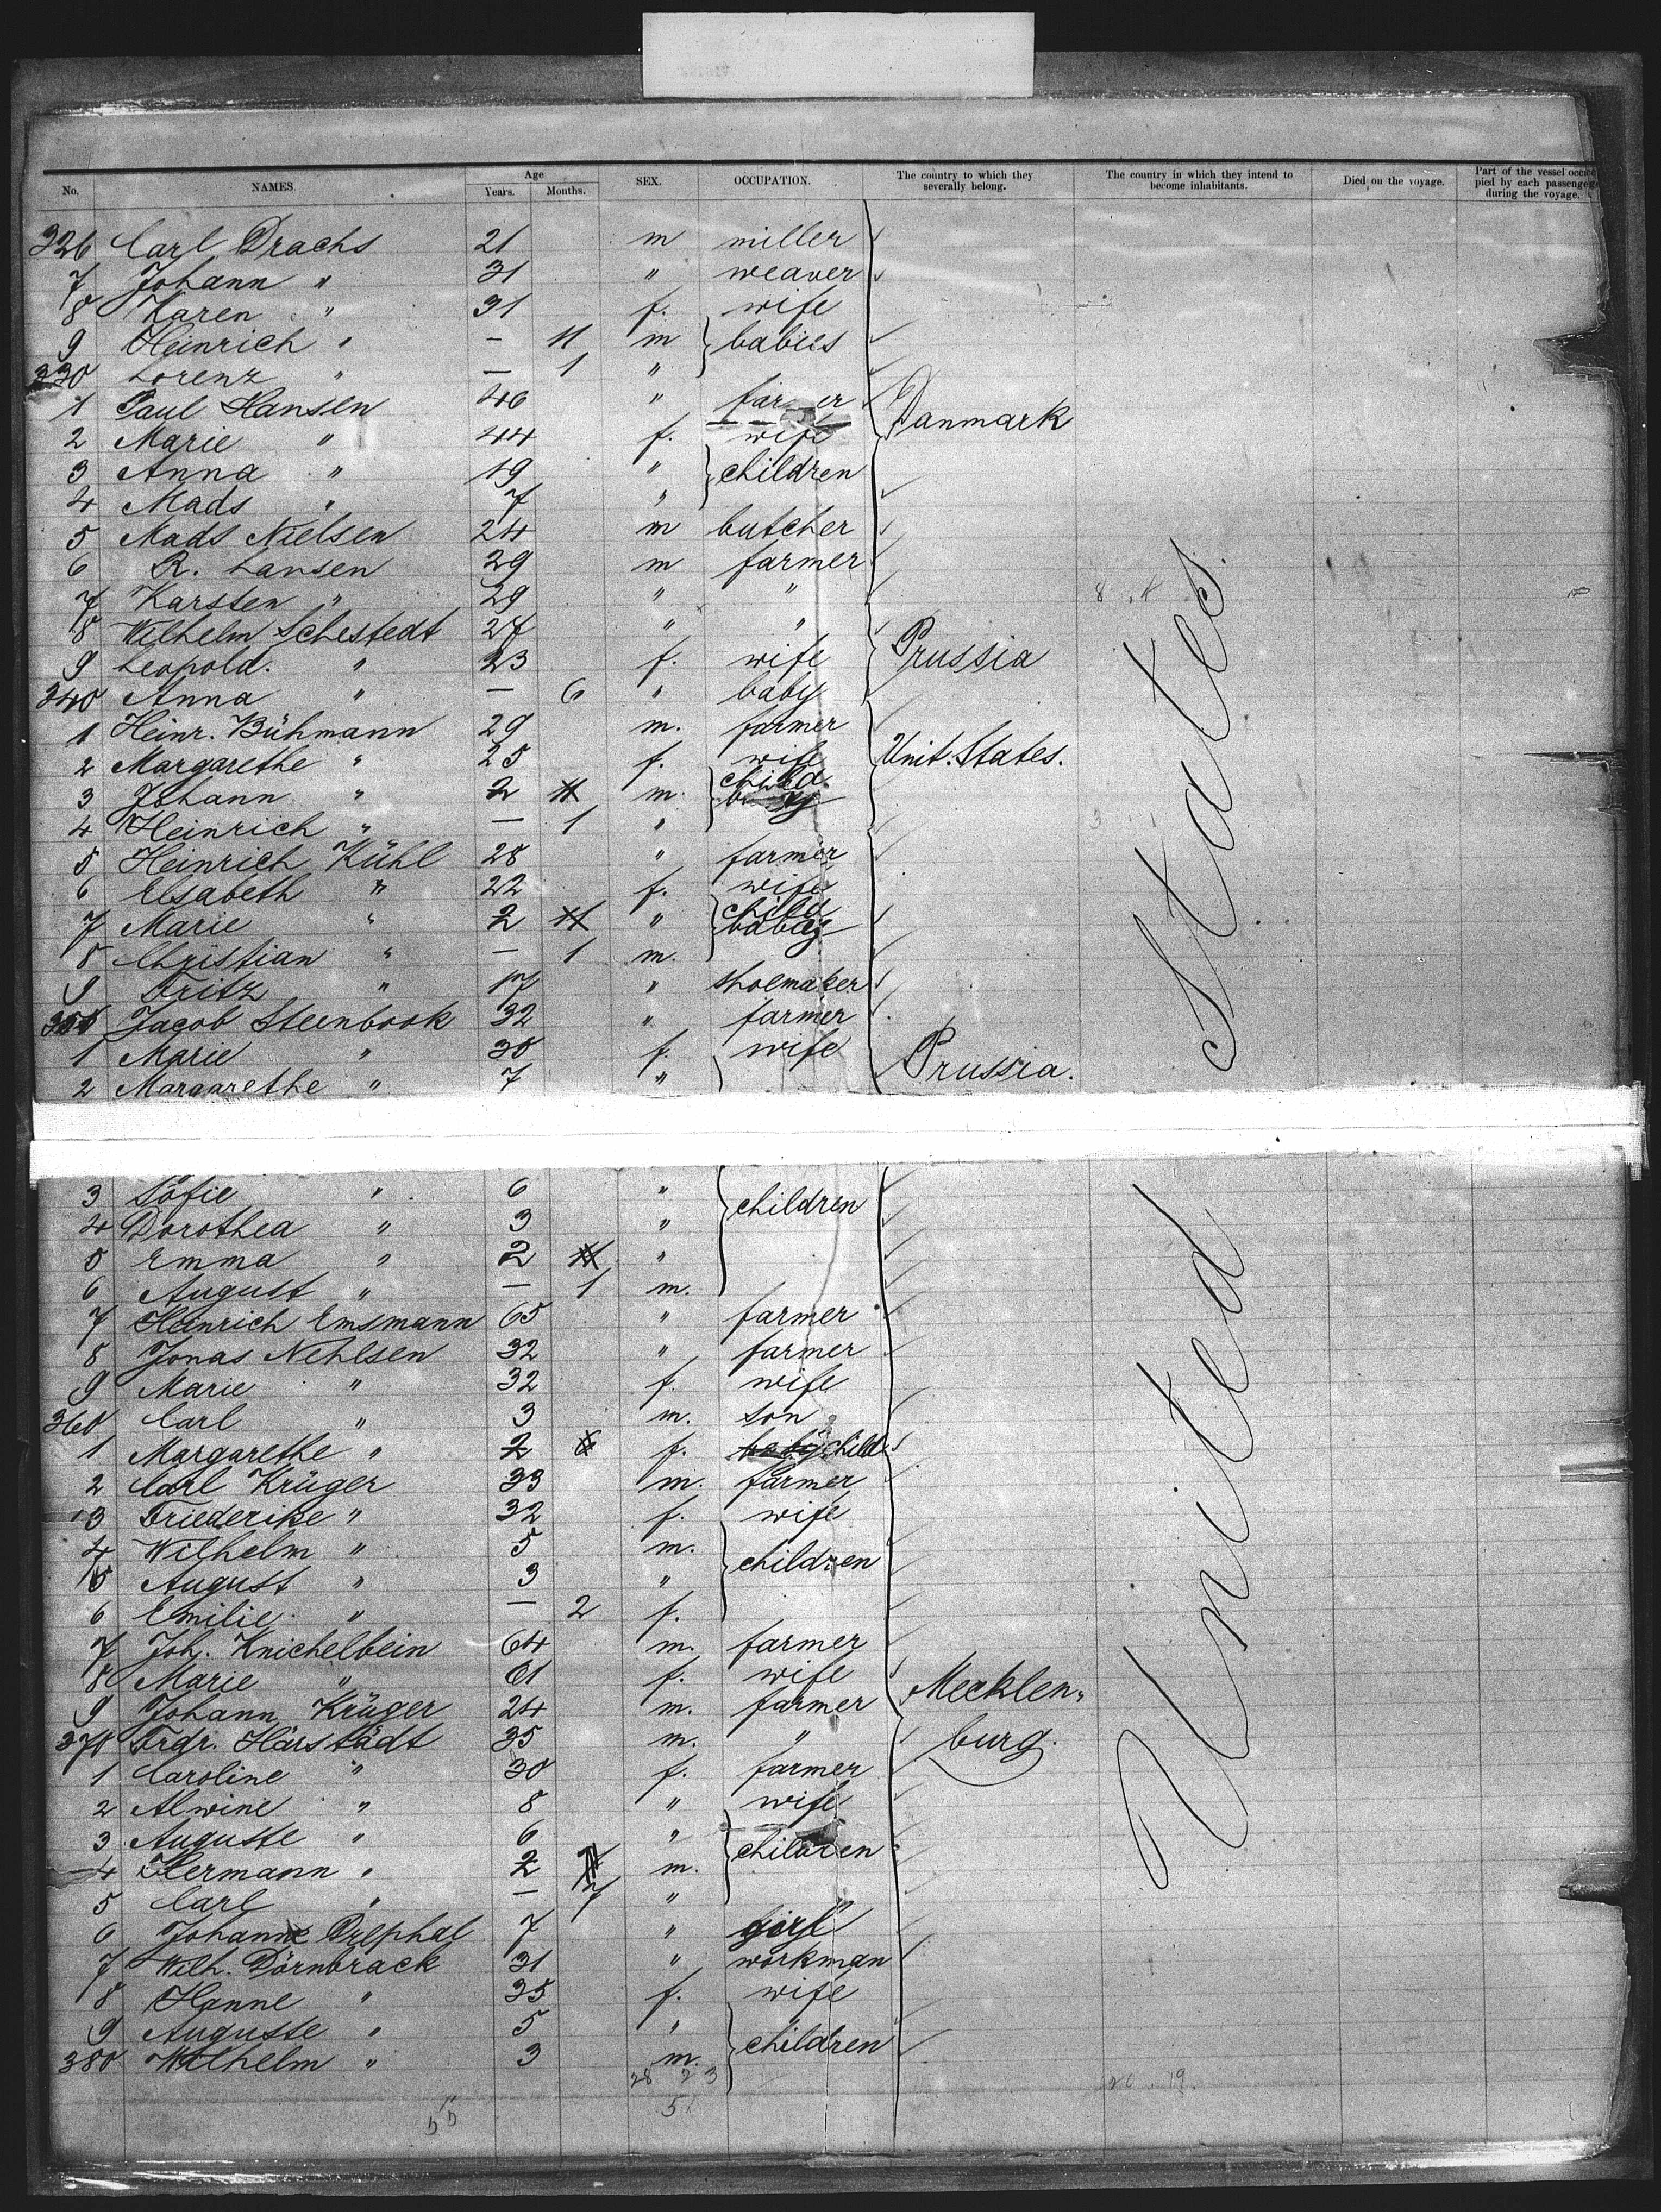 No. NAMES. Age Years. Months. SEX. OCCUPATION. The country to which they severally belong. The country in which they intend to become inhabitants. Died on the voyage. Part of the vessel occupied by each passenger during the voyage.
326 Carl Drachs 21 m miller
7 Johann " 31 " weaver
8 Karen " 31 f. wife
9 Heinrich " — 11 m babies
330 Lorenz " — 1 "
1 Paul Hansen 46 " farmer Danmark
2 Marie " 44 f. wife
3 Anna " 19 " children
4 Mads " 7 "
5 Mads Nielsen 24 m butcher
6 R. Larsen 29 m farmer
7 Karsten " 29 " "
8 Wilhelm Schestedt 27 " "
9 Leopold. " 23 f. wife Prussia
340 Anna " — 6 " baby
1 Heinr. Bühmann 29 m. farmer
2 Margarethe " 25 f. wife Unit. States.
3 Johann " 2 11 m. child
4 Heinrich " — 1 "
5 Heinrich Kühl 28 " farmer
6 Elsabeth " 22 f. wife
7 Marie " 2 11 " child baby
8 Christian " — 1 m.
9 Fritz " 17 " shoemaker
350 Jacob Steenbook 32 " farmer
1 Marie " 30 f. wife Prussia.
2 Margarethe " 7 "
3 Sofie " 6 " children
4 Dorothea " 3 "
5 Emma " 2 11 "
6 August " — 1 m.
7 Heinrich Emsmann 65 " farmer
8 Jonas Nehlsen 32 " farmer
9 Marie " 32 f. wife
360 Carl " 3 m. son
1 Margarethe " 2 f. baby child
2 Carl Krüger 33 m. farmer
3 Friederike " 32 f. wife
4 Wilhelm " 5 m. children
5 August " 3 "
6 Emilie " — 2 f.
7 Joh. Knichelbein 64 m. farmer
8 Marie " 61 f. wife Mecklen„
9 Johann Krüger 24 m. farmer
370 Frdr. Härstädt 35 m. " burg.
1 Caroline " 30 f. farmer
2 Alwine " 8 " wife
3 Auguste " 6 " children
4 Hermann " 2 m.
5 Carl " — 7 "
6 Johann Drephal 7 " girl
7 Wilh. Dörnbrack 31 " workman
8 Hanne " 35 f. wife
9 Auguste " 5 " children
380 Wilhelm " 3 m.
United States.
28 23
55